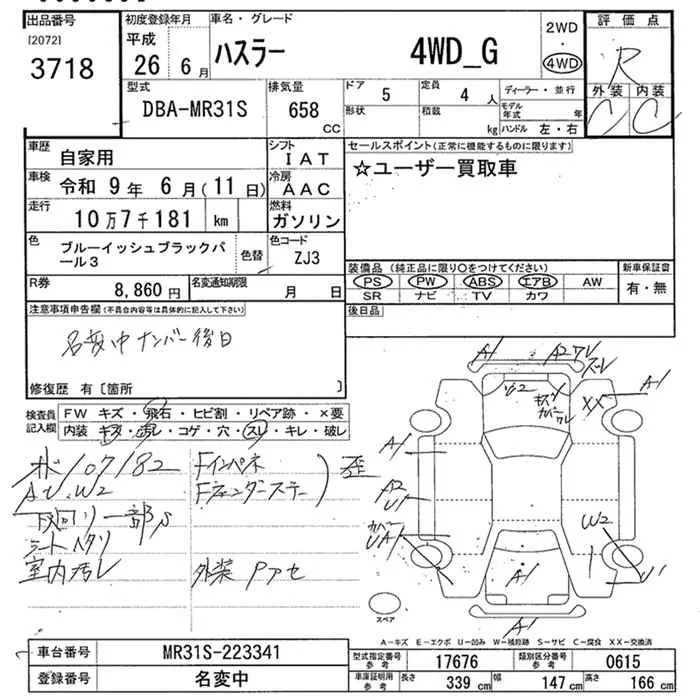 出品番号
[2072]
3718
初度登録年月
平成
26 6月
車名・グレード
ハスラー 4WD_G
2WD
・
4WD
評価点
R
外装 内装
C C
型式
DBA-MR31S
排気量
658
CC
ドア 5
定員 4 人
形状
積載 kg
ディーラー・並行
モデル年式 年
ハンドル 左・右
車歴 自家用
シフト IAT
車検 令和 9年 6月(11日)
冷房 AAC
走行 10万7千181 km
燃料 ガソリン
色 ブルーイッシュブラックパール3
色替
色コード ZJ3
R券 8,860円
名変通知期限 月 日
セールスポイント(正常に機能するものに限ります)
☆ユーザー買取車
装備品 (純正品に限り○をつけてください)
PS PW ABS エアB AW
SR ナビ TV カワ
新車保証書
有・無
後日品
注意事項申告欄(不具合内容等は具体的に記入して下さい)
名変中ナンバー後日
修復歴 有〔箇所 〕
検査員記入欄
FW キズ・飛石・ヒビ割・リペア跡・×要
内装 キズ・汚レ・コゲ・穴・スレ・キレ・破レ
107182
AU、W2
下回リ一部S
シートヘタリ
室内汚レ
Fインパネ
Fフェンダーステー
歪
外装 Pアセ
A1
A2 ワレ
ズレ
A1
W2
キズ
カバーワレ
XX
A1
A2
U1
カバー
UA1
W2
U1
A1
A1
スペア
A-キズ E-エクボ U-凹み W-補修跡 S-サビ C-腐食 XX-交換済
車台番号 MR31S-223341
登録番号 名変中
型式指定番号 参考 17676
類別区分番号 参考 0615
車庫証明用 参考 長さ 339cm 幅 147cm 高さ 166cm